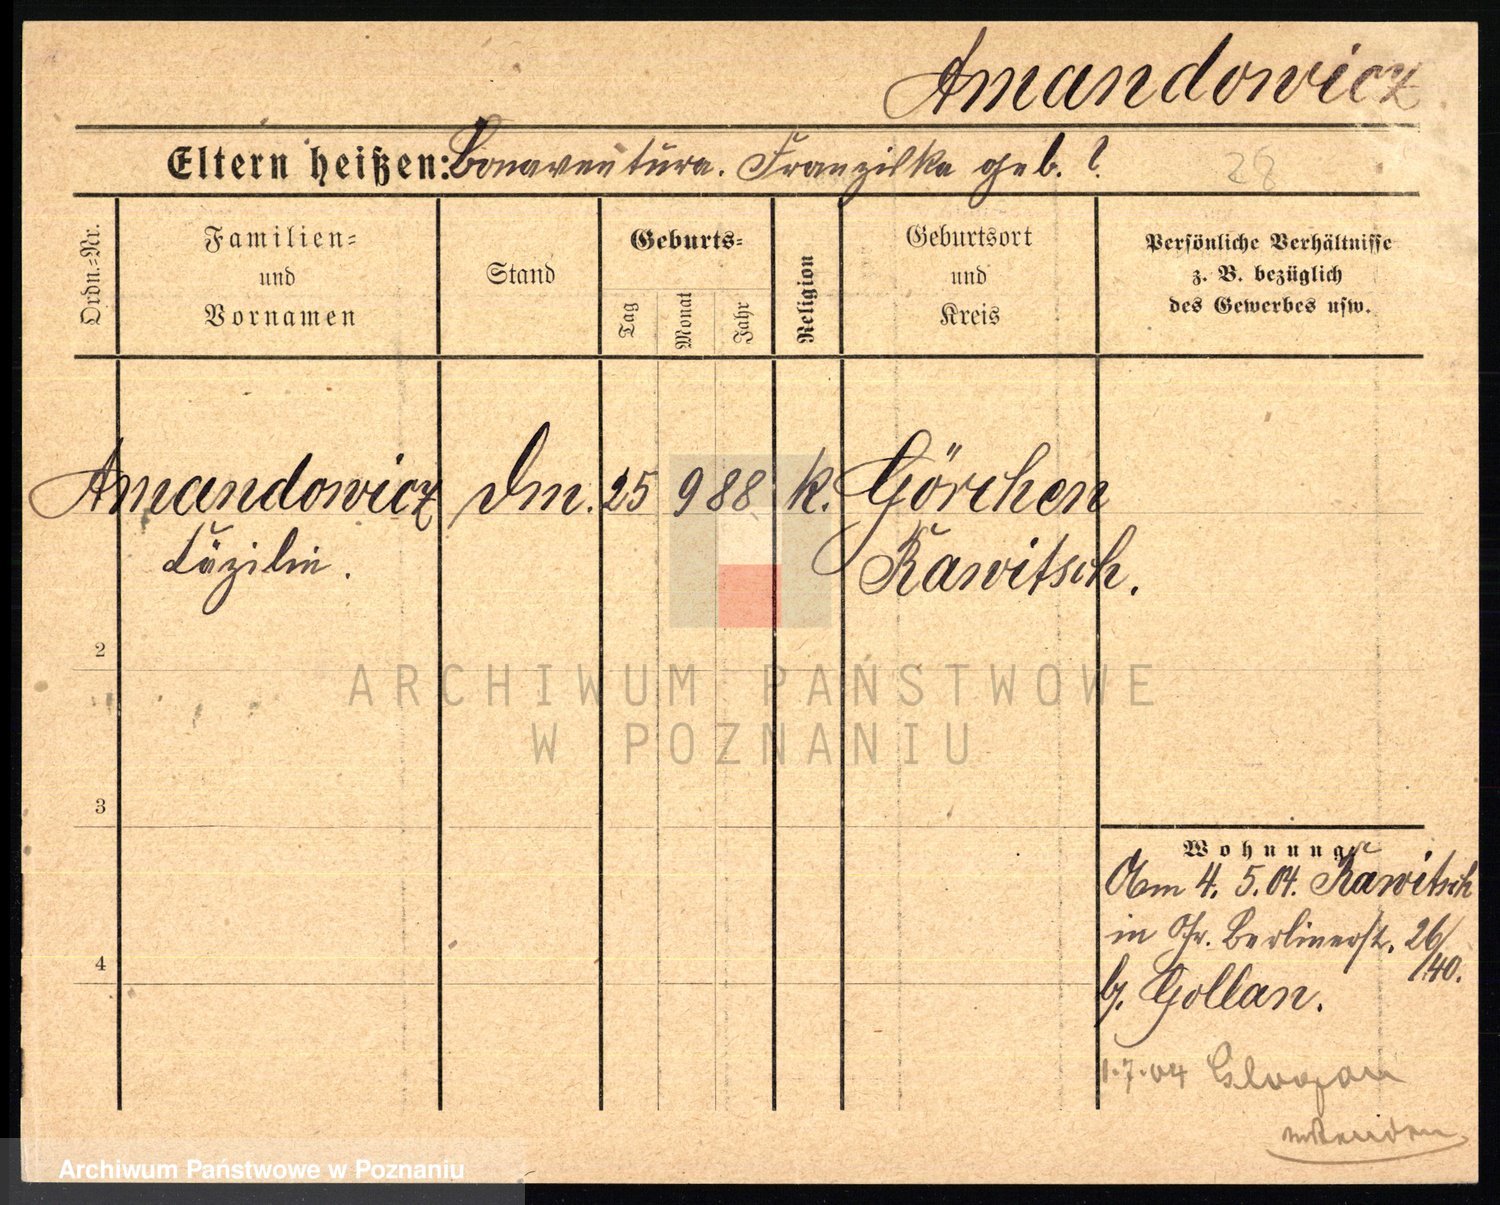 Amandowicz
Eltern heißen: Bonaventura. Franziska geb. ?
28
Ordn.=Nr.
Familien=
und
Vornamen
Stand
Geburts=
Tag
Monat
Jahr
Religion
Geburtsort
und
Kreis
Persönliche Verhältnisse
z. B. bezüglich
des Gewerbes usw.
Amandowicz Dm. 25 9 88 k. Görchen
Cäzilie. Rawitsch.
2
ARCHIWUM PAŃSTWOWE
W POZNANIU
3
Wohnung
Am 4. 5. 04. Rawitsch
in Gr. Berlinerst. 26/40.
b. Gollan.
4
1.7.04 Glogau
Archiwum Państwowe w Poznaniu